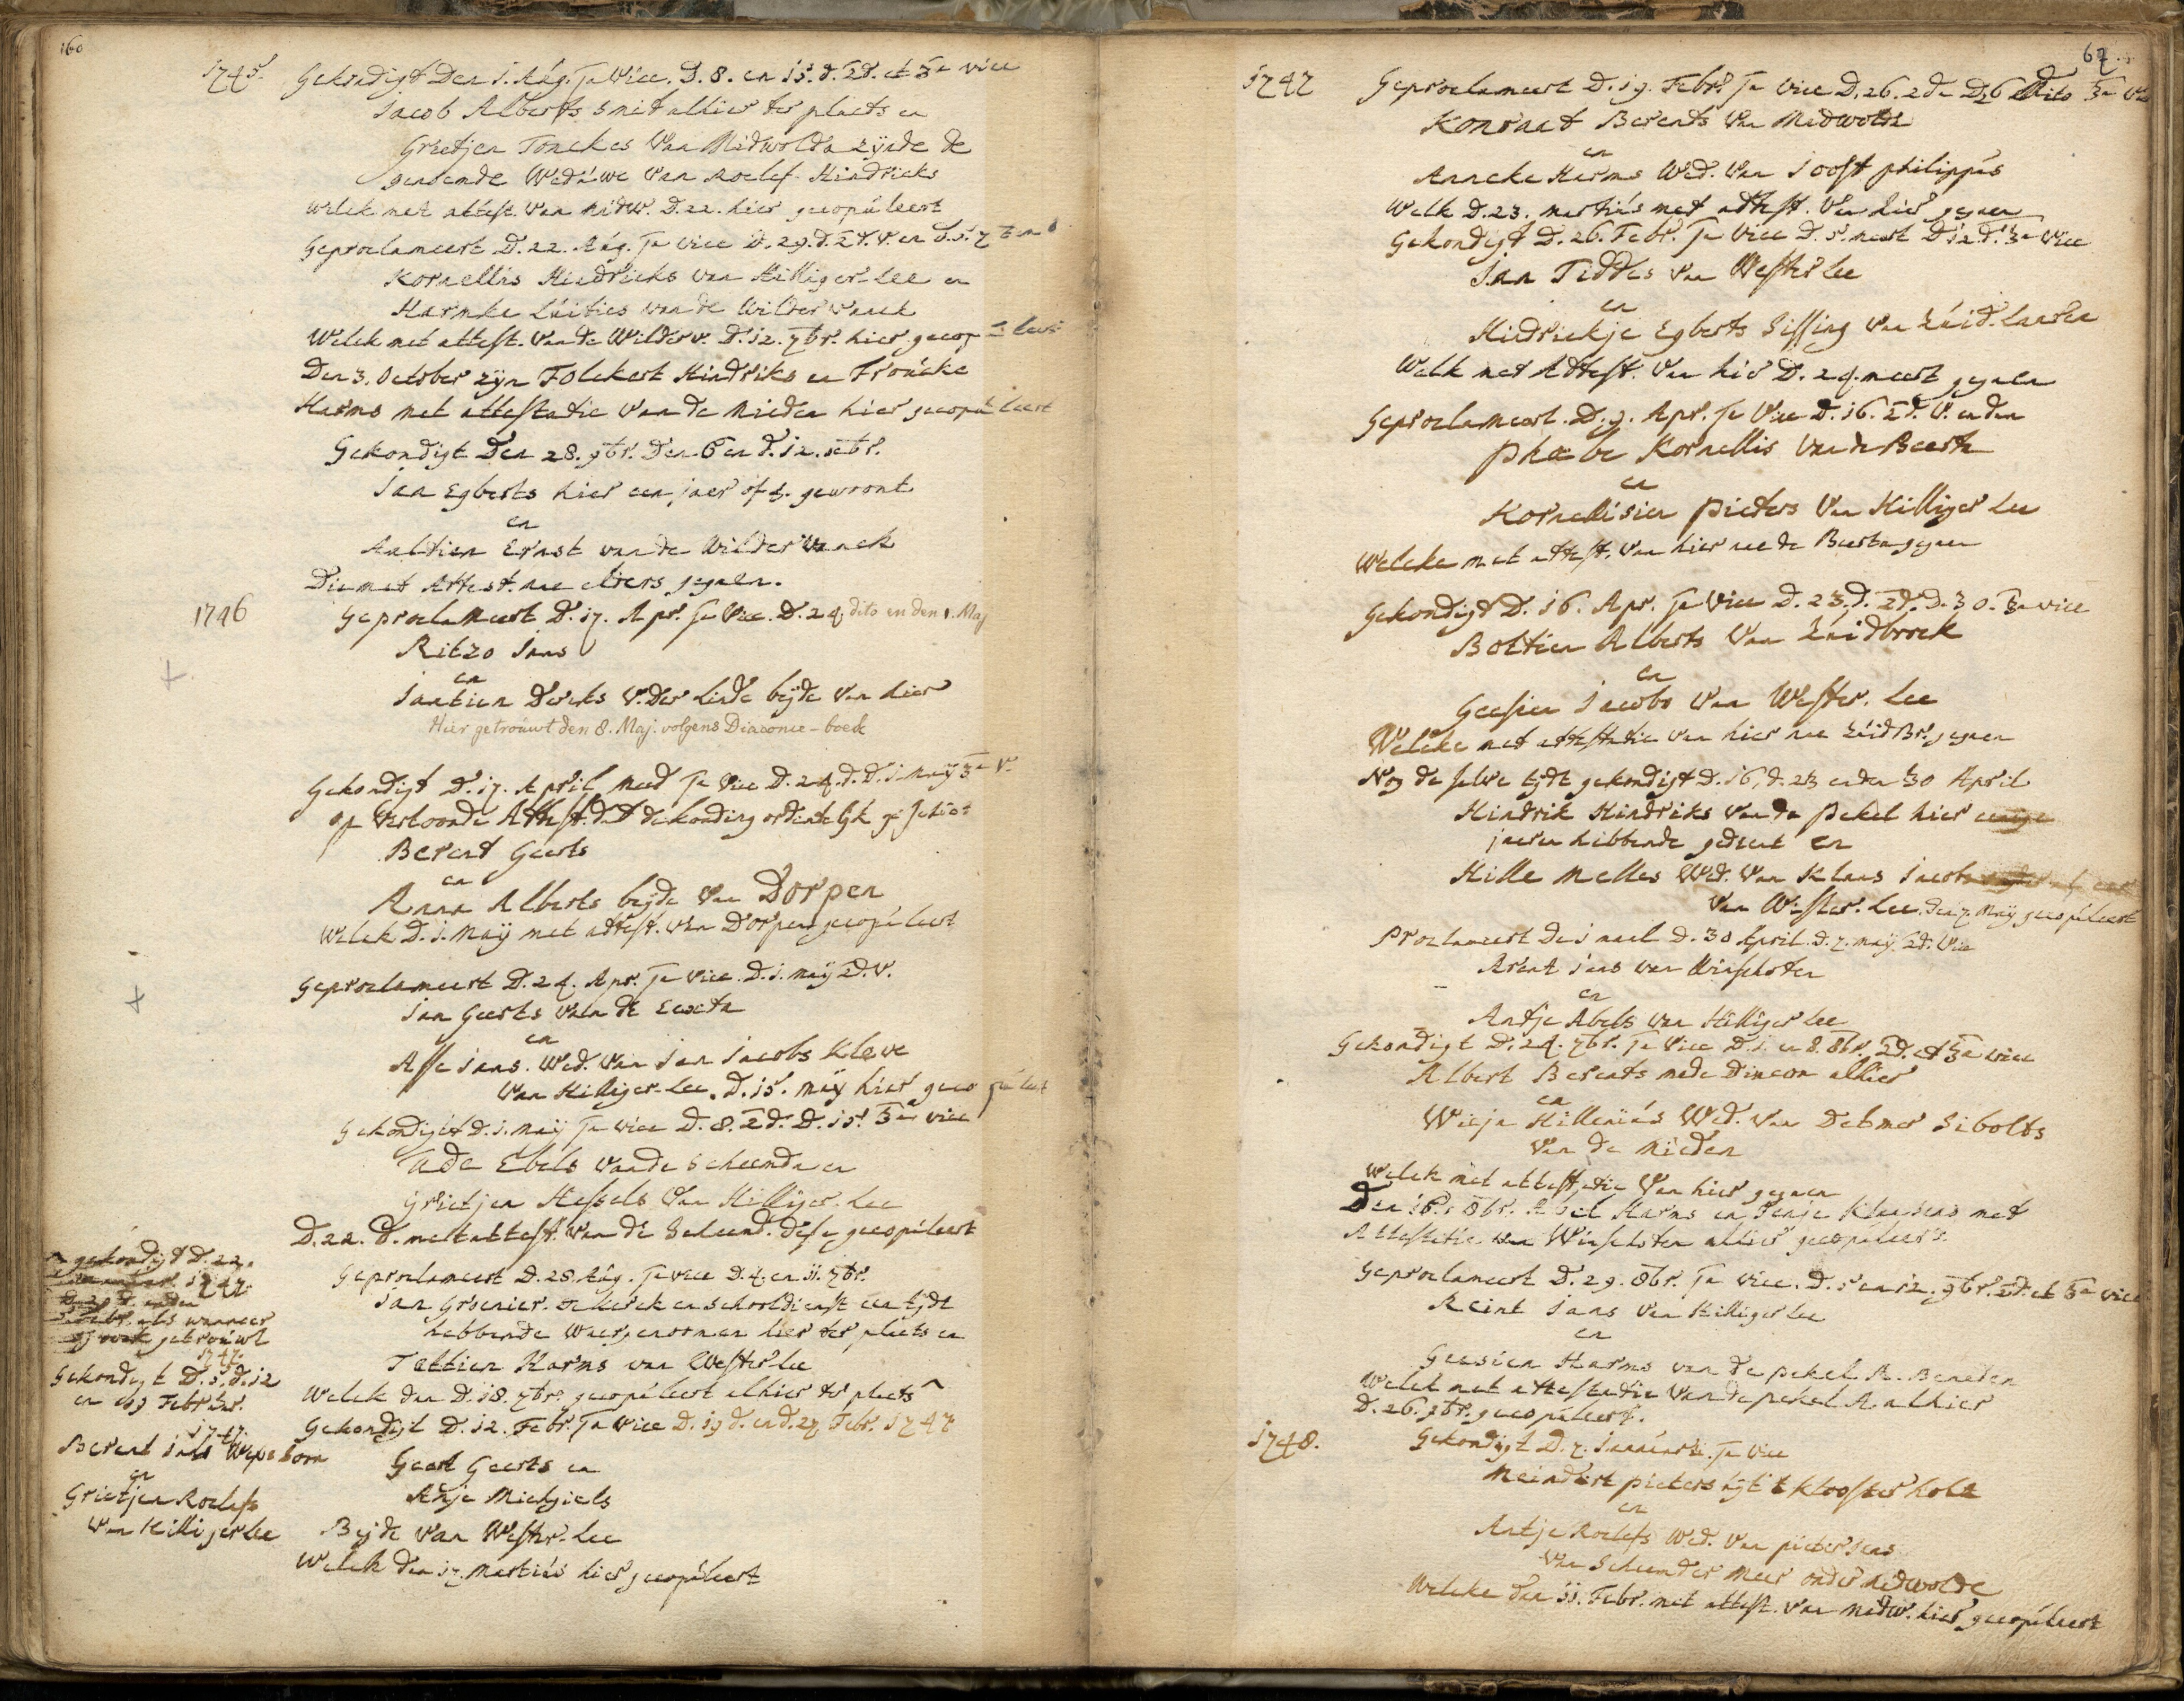 160
1745.
Gekondigt Den 1. Aug. 1e vice. D. 8. en 15. d. 2d. et 3e vice
Jacob Alberts smit alhier ter plaets en
Grietjen Tonckes van Midwolda zijnde de
genoemde Weduwe van Roelef Hindricks
welck met attest. van Midw. D. 22. hier gecopuleert
Geproclameert D. 22. Aug. 1e vice D. 29. d. 2d. V. en d. 5. 7
Kornellis Hindricks van Hilligerlee en
Harmke Luities van de Wilder vanck
Welck met attest. van de Wilderv. D. 12. 7br. hier gecopuleert
Den 3. October zijn Folckert Hindriks en Froucke
Harms met attestatie van de Mieden hier gecopuleert
Gekondigt Den 28. 9br. Den 6 en d. 12. xbr.
Jan Egberts hier een jaer of 3. gewoont
en
Aaltien Ernst van de Wilder vanck
Die met Attest. nae elders gegaen.
1746
Geproclameert D. 17. Apr. 1e Vice. D. 24. dito en den 1. Maj
Ritzo Jans
en
Jantien Dercks v. der Linde beijde van hier
Hier getrouwt den 8. Maj. volgens Diaconie-boeck
Gekondigt D. 17. April meed 1e vice D. 24. d. D. 1. Maij 3e V.
op vertoonde Attest. dat de konding ordentelijk geschiet
Berent Geerts
en
Anna Alberts beijde van Dorpen
Welck D. 1. Maij met attest. van Dorpen gecopuleert
Geproclameert D. 24. Apr. 1e vice. D. 1. Maij 2d. V.
Jan Geerts van de Eexta
en
Affe Jans. Wed. van Jan Jacobs Kleve
van Hilliger-lee. D. 15. Maij hier gecopuleert
Gekondigt D. 1. Maij 1e vice D. 8. 2d. D. 15. 3e vice
Tade Ebels van de Scheemda en
Grietjen Hessels van Hilliger-lee
D. 22. d. met attest. van de Scheemd. dese gecopuleert
Geproclameert D. 28. Aug. 1e vice D. 4. en 11. 7br.
Jan Groenier. de kerck en schooldienst een tijdt
hebbende waergenomen hier ter plaets en
Tettien Harms van Westerlee
Welck den D. 18. 7br. gecopuleert alhier ter plaets
Gekondigt D. 12. Febr. 1e vice D. 19 d. en d. 27 Febr. 1747
Geert Geerts en
Antje Michgiels
Beijde van Wester-lee
Welck den 17. Martius hier gecopuleert
gekondigt D. 22.
1747.
wanneer
getrouwt
1747.
Gekondigt D. 5. d. 12
en 19 Februar.
1747.
Berent Jans Wepeborn
en
Grietjen Roelefs
van Hilligerlee
1747
Geproclameert D. 19. Febr. 1e vice D. 26. 2de D. 26 dito 3e
Konraet Berents van Midwolda
en
Anneke Harms Wed. van Joost Philippus
Welk D. 23. Martius met attest. van hier gegaen
Gekondigt D. 26. Febr. 1e vice D. 5. meert D. 12. d. 3e vice
Jan Tiddes van Westerlee
en
Hindrickje Egberts Sissing van Zuid-laarden
Welk met Attest. van hier D. 24. meert gegaen
Geproclameert. D. 9. Apr. 1e Vice D. 16. 2d. V. en den
Phœbe Kornellis van de Beerta
en
Kornellisien Pieters van Hilliger lee
Welcke met attest. van hier nae de Beerta gegaen
Gekondigt D. 16. Apr. 1e vice D. 23. d. 2d. D. 30. 3e vice
Boltien Alberts van Zuidbroek
en
Geesien Jacobs van Wester-lee
Welcke met attestatie van hier nae Zuidbr. gegaen
Nog de selve tijdt gekondigt D. 16, d. 23 en den 30 April
Hindrik Hindriks van de Pekel hier eenige
jaeren hebbende gedient en
Hille Melles Wed. van Klaas Jacobs
van Wester-lee. den 7. Maij gecopuleert
Proclameert de 1 mael D. 30 April. D. 7. maij 2d. Vice
Arent Jans van Winschoten
en
Antje Abels van Hilligerlee
Gekondigt D. 24. 7br. 1e vice D. 1. en 8. 8br. 2d. et 3e vice
Albert Berents mede Diacon alhier
en
Wieja Hillenius Wed. van Detmer Sibolts
van de Mieden
Welck met attestatie van hier gegaen
Den 15. 8br. Abel Harms en Jenje Klaasens met
Attestatie van Winschoten alhier gecopuleert.
Geproclameert D. 29. 8br. 1e vice. D. 5 en 12. 9br. 2d. et 3e vice
Reint Jans van Hilligerlee
en
Geesien Harms van de Pekel A. Beneden
Welck met attestatie van de Pekel A alhier
D. 26. 9br. gecopuleert.
1748.
Gekondigt D. 7. Januarii. 1e vice
Meindert Pieters uijt 't Klooster holt
en
Antje Roelefs Wed. van Pieter Jans
van Scheemder Meer onder Midwolde
Welcke den 11. Febr. met attest. van Midw. hier gecopuleert